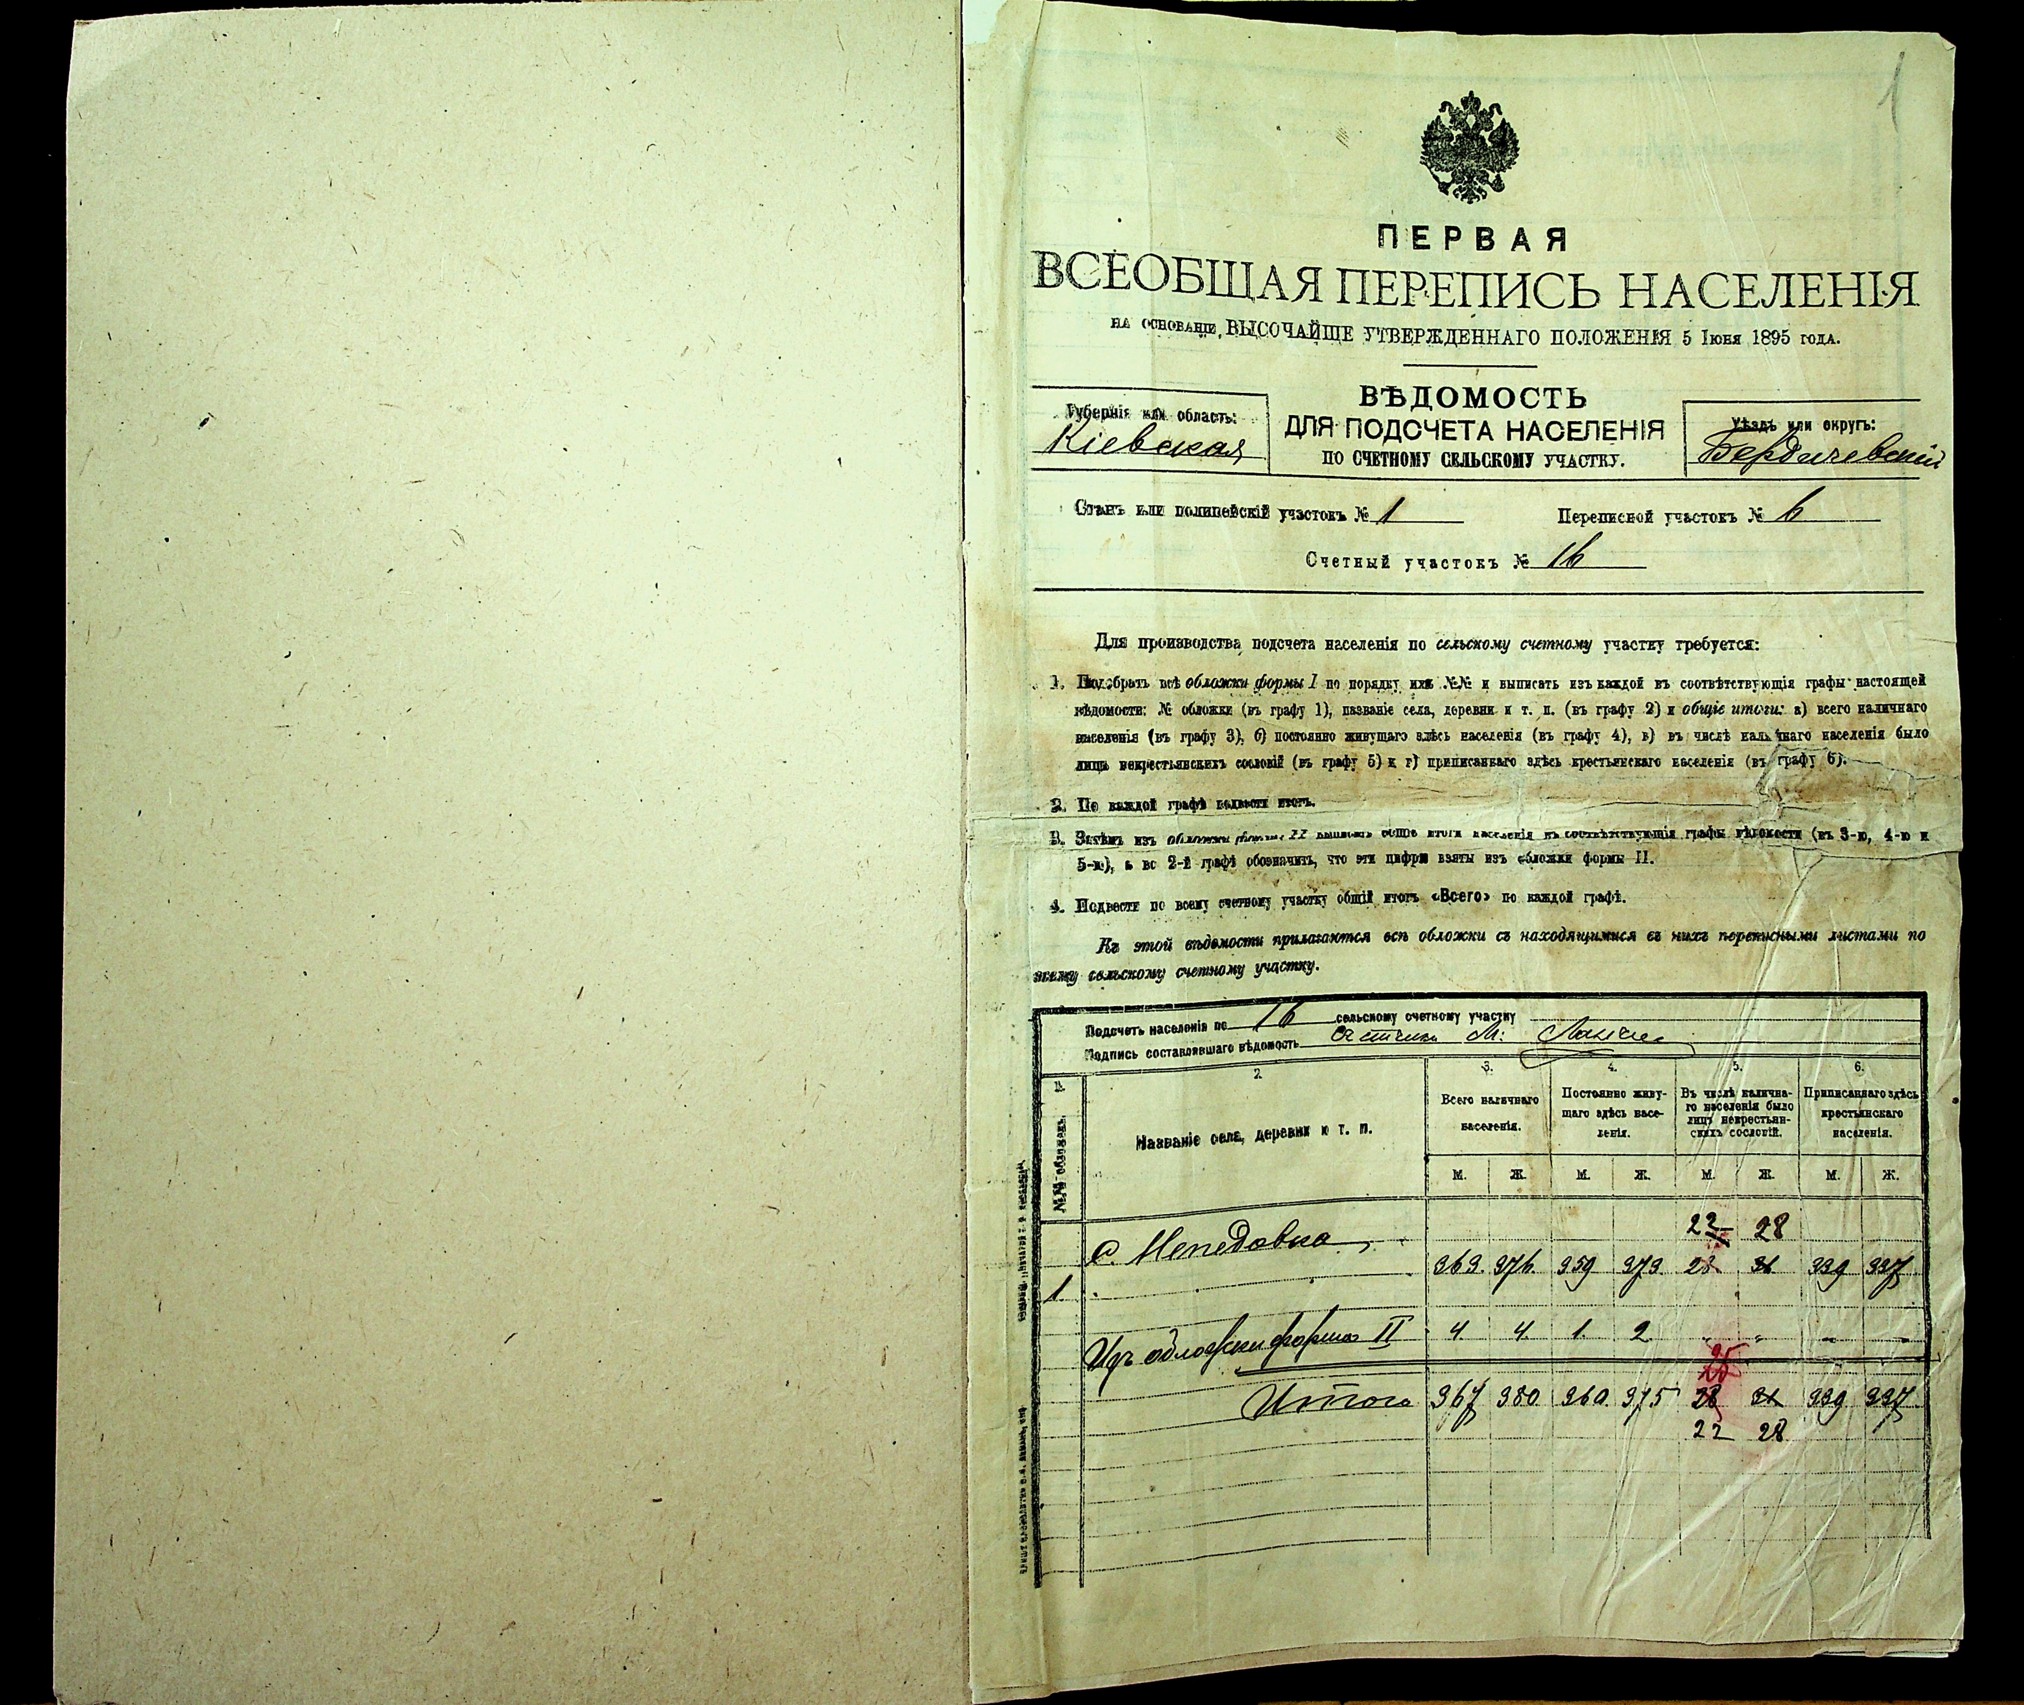 1
ПЕРВАЯ
ВСЕОБЩАЯ ПЕРЕПИСЬ НАСЕЛЕНІЯ
НА ОСНОВАНІИ ВЫСОЧАЙШЕ УТВЕРЖДЕННАГО ПОЛОЖЕНІЯ 5 Іюня 1895 года.
Губернія или область:
Кіевская
ВѢДОМОСТЬ
ДЛЯ ПОДСЧЕТА НАСЕЛЕНІЯ
ПО СЧЕТНОМУ СЕЛЬСКОМУ УЧАСТКУ.
Уѣздъ или округъ:
Бердичевскій
Станъ или полицейскій участокъ № 1
Переписной участокъ № 6
Счетный участокъ № 16
Для производства подсчета населенія по сельскому счетному участку требуется:
1. Подобрать всѣ обложки формы I по порядку ихъ №№ и выписать изъ каждой въ соотвѣтствующія графы настоящей
вѣдомости: № обложки (въ графу 1), названіе села, деревни и т. п. (въ графу 2) и общіе итоги: а) всего наличнаго
населенія (въ графу 3), б) постоянно живущаго здѣсь населенія (въ графу 4), в) въ числѣ наличнаго населенія было
лицъ некрестьянскихъ сословій (въ графу 5) и г) приписаннаго здѣсь крестьянскаго населенія (въ графу 6).
2. По каждой графѣ подвести итогъ.
3. Затѣмъ изъ обложки формы II выписать общіе итоги населенія въ соотвѣтствующія графы вѣдомости (въ 3-ю, 4-ю и
5-ю), а во 2-й графѣ обозначить, что эти цифры взяты изъ обложки формы II.
4. Подвести по всему счетному участку общій итогъ «Всего» по каждой графѣ.
Къ этой вѣдомости прилагаются всѣ обложки съ находящимися въ нихъ переписными листами по
всему сельскому счетному участку.
Подсчетъ населенія по 16 сельскому счетному участку
Подпись составлявшаго вѣдомость Счетчикъ М:
1. 2. 3. 4. 5. 6.
№№ обложекъ.
Названіе села, деревни и т. п.
Всего наличнаго
населенія.
Постоянно живу-
щаго здѣсь насе-
ленія.
Въ числѣ налична-
го населенія было
лицъ некрестьян-
скихъ сословій.
Приписаннаго здѣсь
крестьянскаго
населенія.
М. Ж. М. Ж. М. Ж. М. Ж.
22 28
с. Мепедовка
1 363. 376. 359 373 28 31 339 337
Изъ обложки формы II 4 4. 1. 2. „ „ - -
25
Итого 367 380 360 375 28 31 339 337
22 28